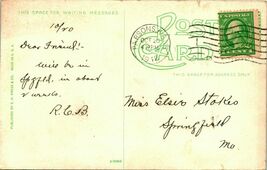 THIS SPACE FOR WRITING MESSAGES
POST
CARD
10/20
Dear Friend:-
Will be in
Spgfld. in about
2 weeks.
R.C.B.
THIS SPACE FOR ADDRESS ONLY
Miss Elsie Stokes
Springfield
Mo.